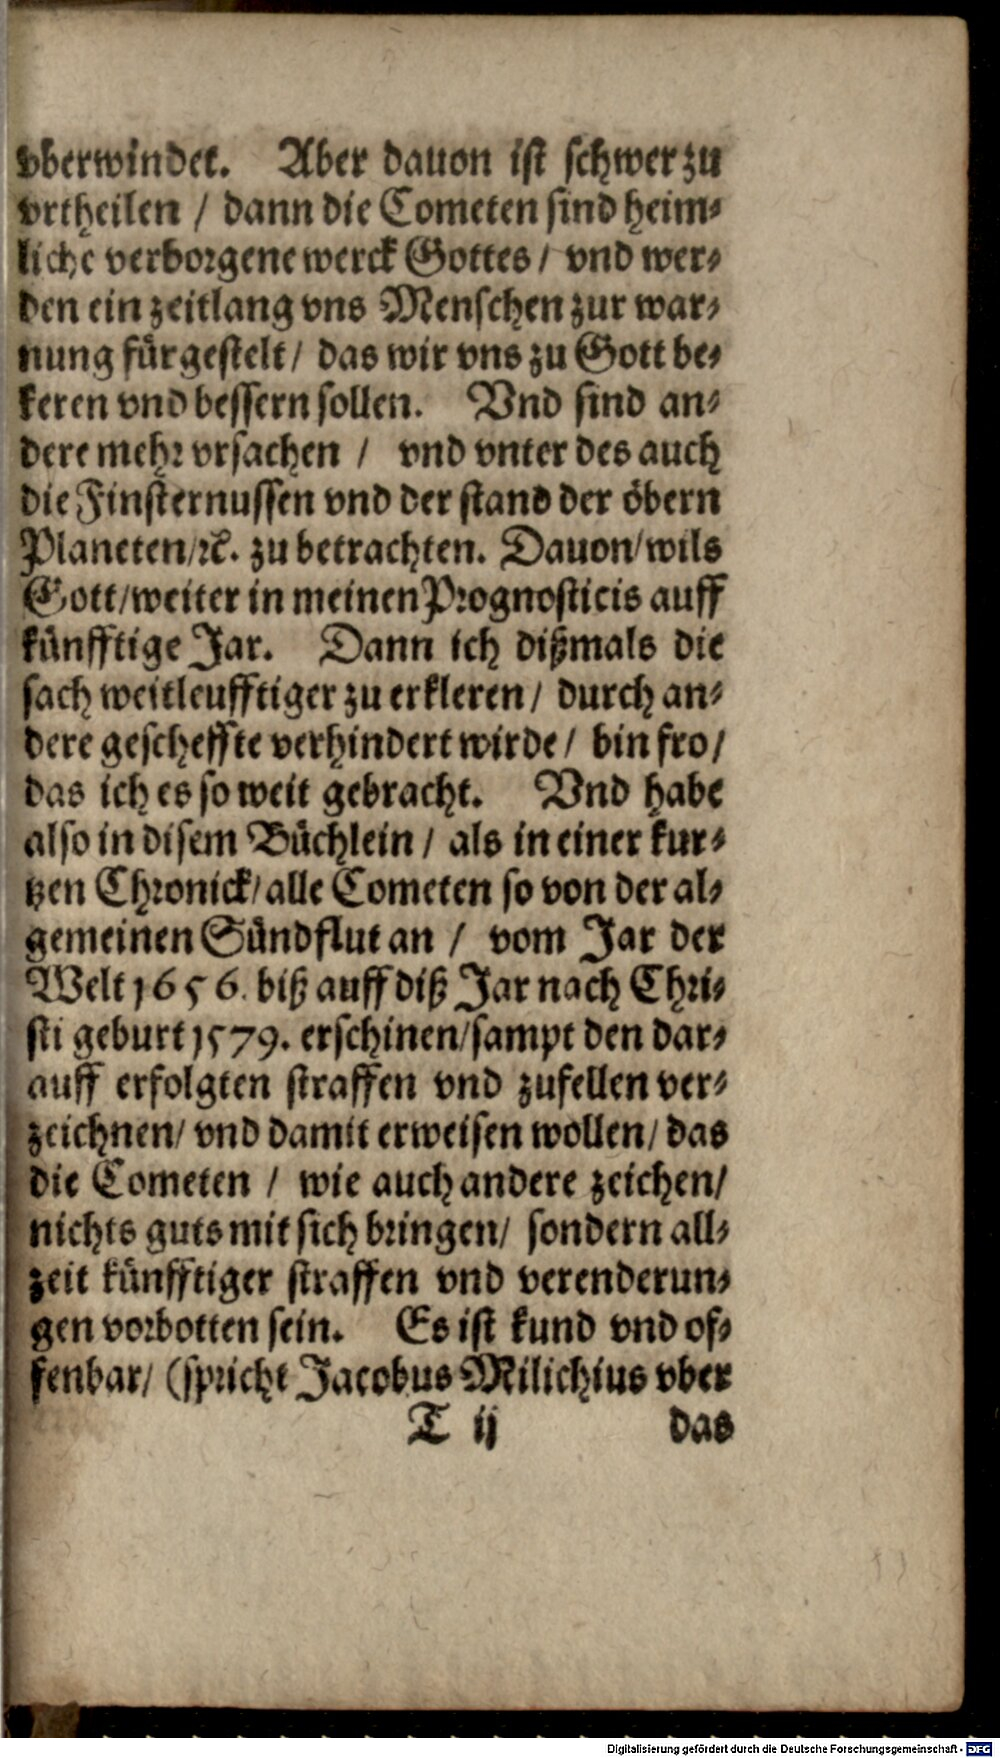 vberwindet. Aber dauon ist schwer zu
vrtheilen / dann die Cometen sind heim⸗
liche verborgene werck Gottes / vnd wer⸗
den ein zeitlang vns Menschen zur war⸗
nung fürgestelt / das wir vns zu Gott be⸗
keren vnd bessern sollen. Vnd sind an⸗
dere mehr vrsachen / vnd vnter des auch
die Finsternussen vnd der stand der öbern
Planeten / ꝛc. zu betrachten. Dauon / wils
Gott / weiter in meinen Prognosticis auff
künfftige Jar. Dann ich dißmals die
sach weitleufftiger zu erkleren / durch an⸗
dere gescheffte verhindert wirde / bin fro /
das ich es so weit gebracht. Vnd habe
also in disem Büchlein / als in einer kur⸗
tzen Chronick / alle Cometen so von der al⸗
gemeinen Sündflut an / vom Jar der
Welt 1656. biß auff diß Jar nach Chri⸗
sti geburt 1579. erschinen / sampt den dar⸗
auff erfolgten straffen vnd zufellen ver⸗
zeichnen / vnd damit erweisen wollen / das
die Cometen / wie auch andere zeichen /
nichts guts mit sich bringen / sondern all⸗
zeit künfftiger straffen vnd verenderun⸗
gen vorbotten sein. Es ist kund vnd of⸗
fenbar / (spricht Jacobus Milichius vber
T ij das
Digitalisierung gefördert durch die Deutsche Forschungsgemeinschaft - DFG